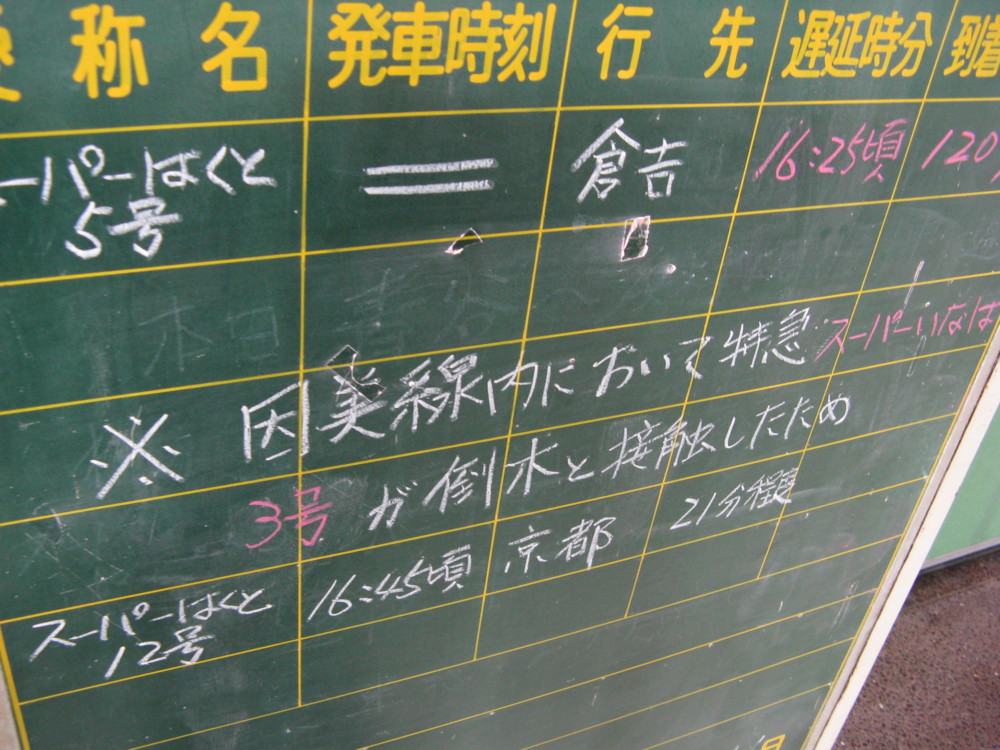 称名 発車時刻 行先 遅延時分 到着
スーパーはくと 5号 = 倉吉 16:25頃 120
※ 因美線内において特急スーパーいなば
3号が倒木と接触したため
スーパーはくと 12号 16:45頃 京都 21分程度